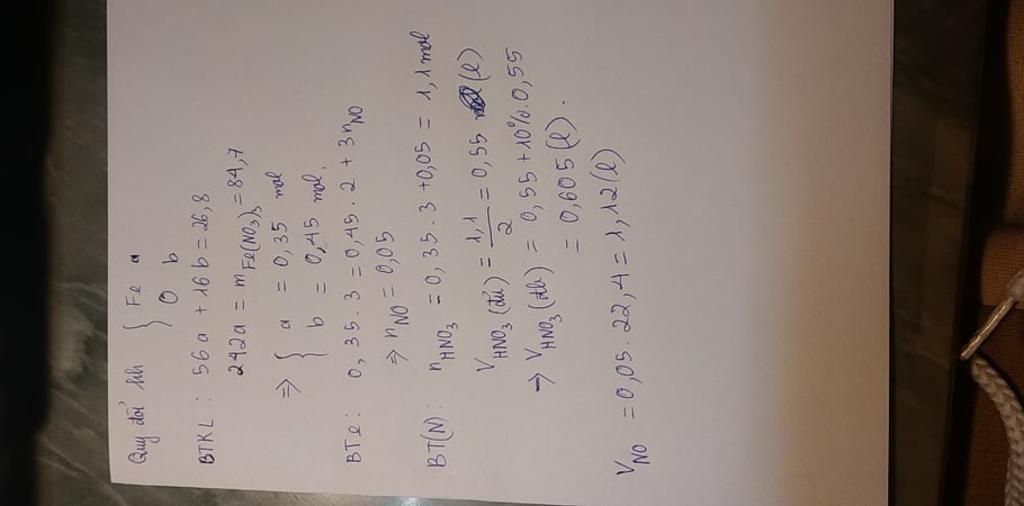 Quy đổi hh { Fe a
O b
BTKL : 56a + 16b = 26,8
242a = mFe(NO3)3 = 84,7
=> { a = 0,35 mol
b = 0,45 mol.
BTe : 0,35.3 = 0,45.2 + 3nNO
=> nNO = 0,05
BT(N) : nHNO3 = 0,35.3 + 0,05 = 1,1 mol
VHNO3 (đủ) = 1,1/2 = 0,55 (l)
-> VHNO3 (đb) = 0,55 + 10%.0,55
= 0,605 (l).
VNO = 0,05.22,4 = 1,12 (l)